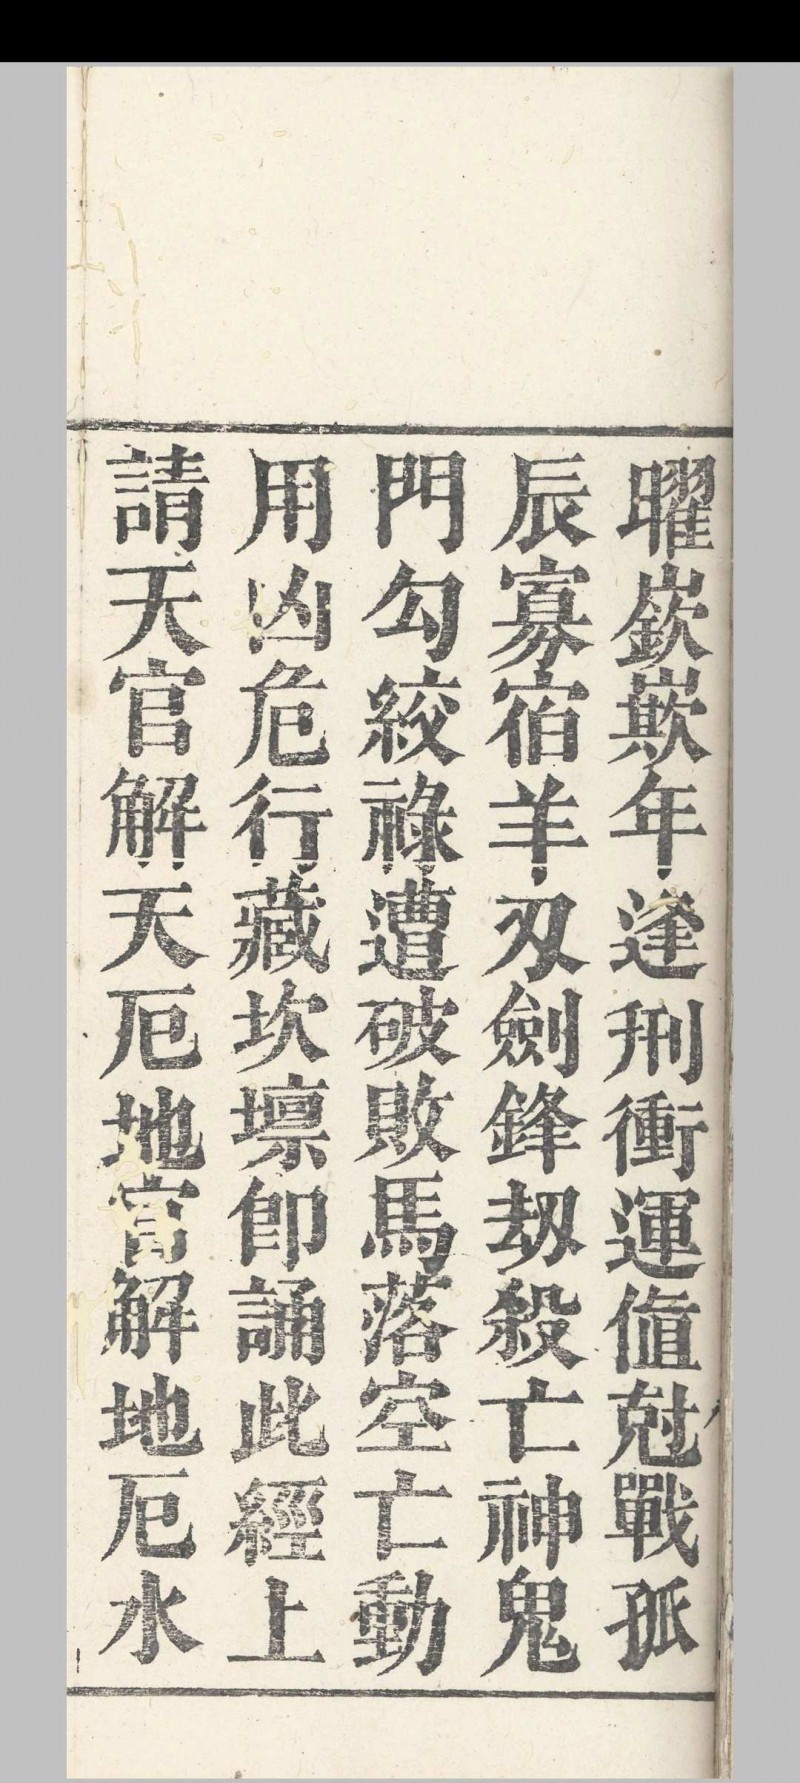 曜嶔嶔年逢刑衝運值尅戰孤
辰寡宿羊刃劍鋒刼殺亡神鬼
門勾絞祿遭破敗馬落空亡動
用凶危行藏坎壈卽誦此經上
請天官解天厄地官解地厄水